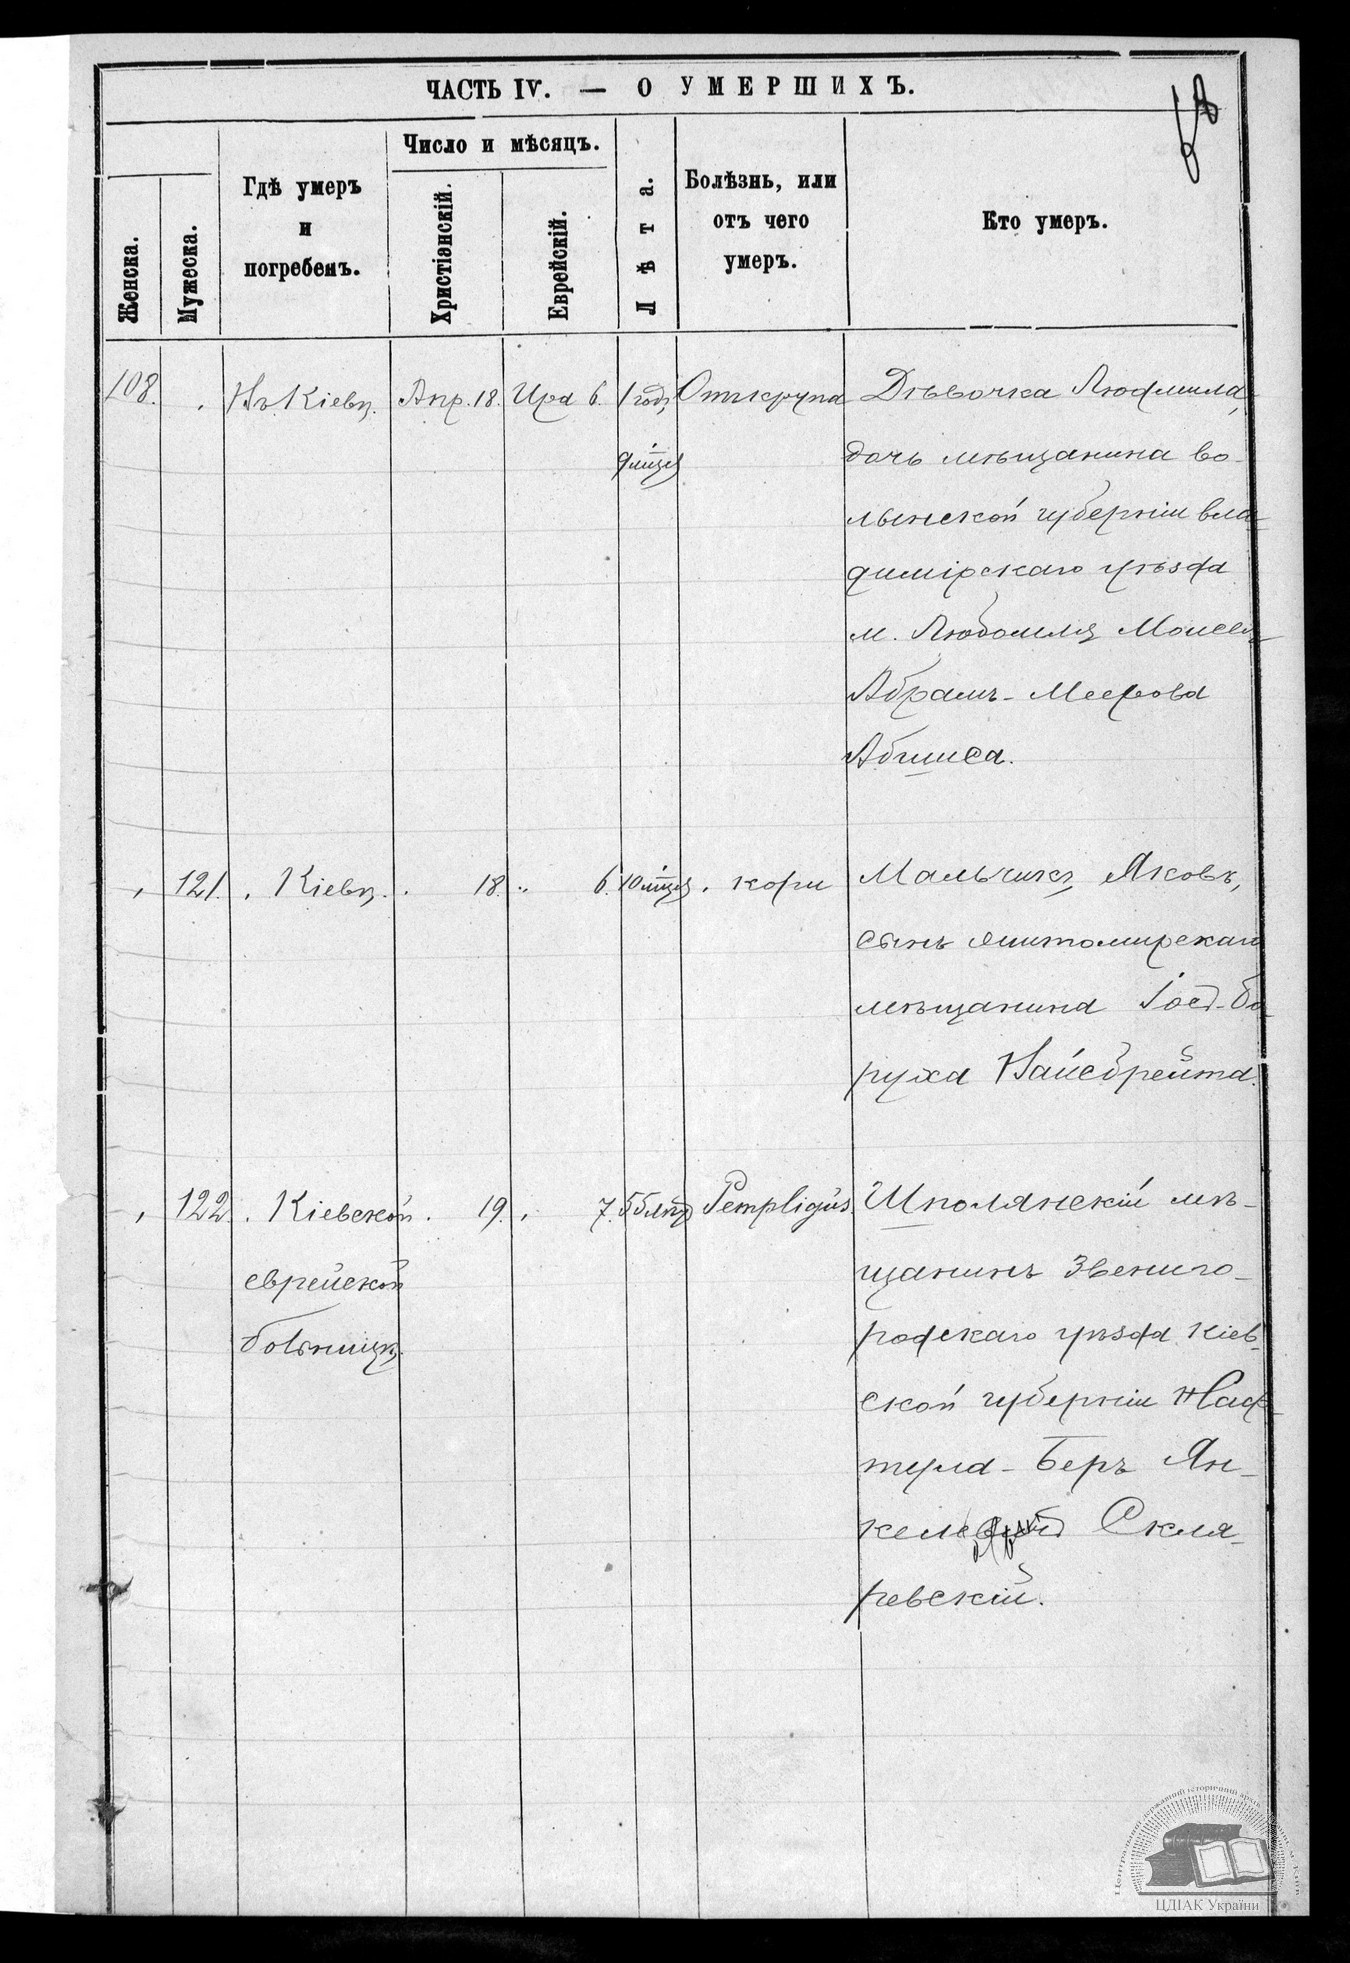 ЧАСТЬ IV. — О УМЕРШИХЪ.
Женска.
Мужеска.
Гдѣ умеръ
и
погребенъ.
Число и мѣсяцъ.
Христіанскій.
Еврейскій.
Лѣта.
Болѣзнь, или
отъ чего
умеръ.
Кто умеръ.
108. Въ Кіевѣ. Апр. 18. Ира 6. 1 годъ Отъ крупа Дѣвочка Людмила,
9 мѣсяц дочь мѣщанина во-
лынской губерніи вла-
димірскаго уѣзда
м. Любомля Моисея
Абрамъ-Меерова
121. Кіевѣ. 18. 6. 10 мѣсяц кори Мальчикъ Яковъ,
сынъ житомирскаго
мѣщанина Іос.-Бо-
руха Найсбрейта.
122. Кіевской 19. 7. 55 лѣтъ Pempligus. Шполянскій мѣ-
еврейской щанинъ Звениго-
больницѣ. родскаго уѣзда Кіев-
ской губерніи Наф-
тула-Беръ Ян-
Скля-
ревскій.
ЦДІАК України